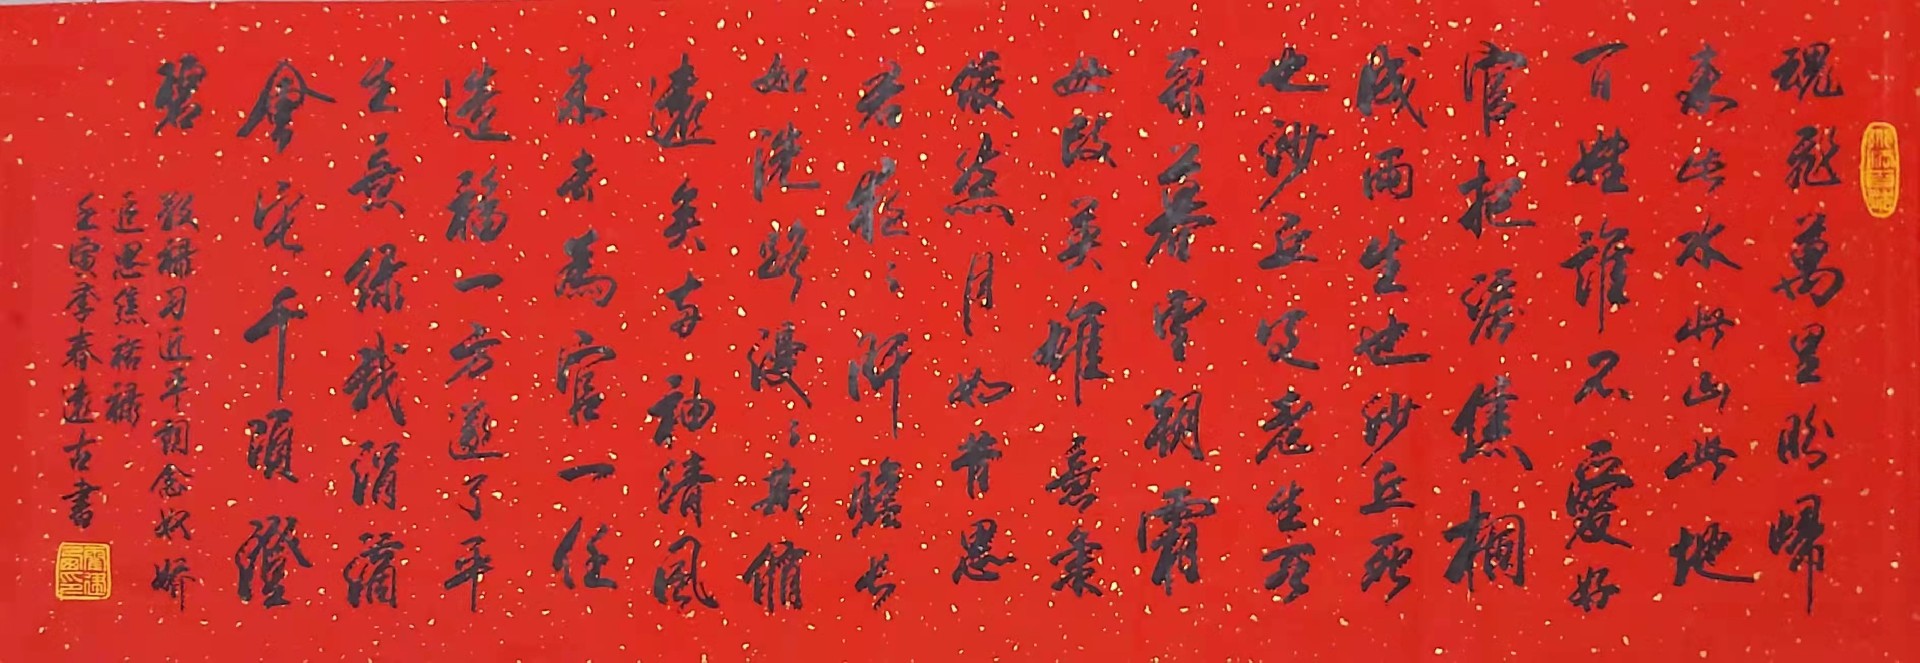 魂飛萬里盼歸
來此水此山此地
百姓誰不愛好
官把淚焦桐
成雨生也沙丘死
也沙丘父老生死
系暮雪朝霜
毋改英雄意氣
依然月如昔思
君夜〻肝膽長
如洗路漫〻其脩
遠矣兩袖清風
來去為官一任
造福一方遂了平
生意綠我涓滴
會它千頃澄
碧
敬録习近平詞念奴嬌
追思焦裕禄
壬寅季春遠古書